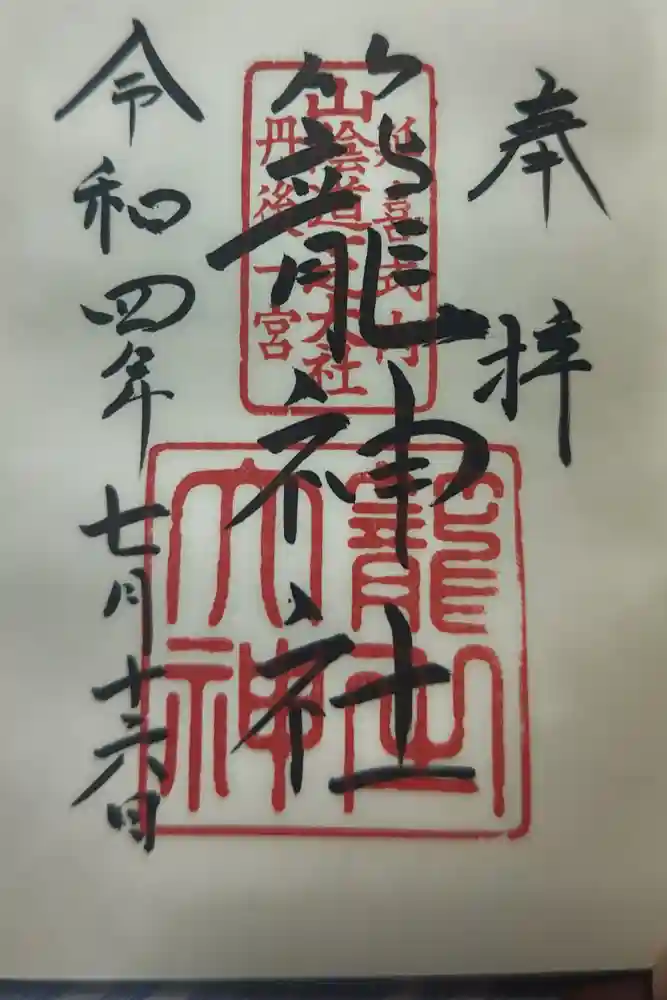 奉拝
延喜式内
山陰道一之大社
丹後一宮
籠神社
籠之
大神
令和四年七月十六日